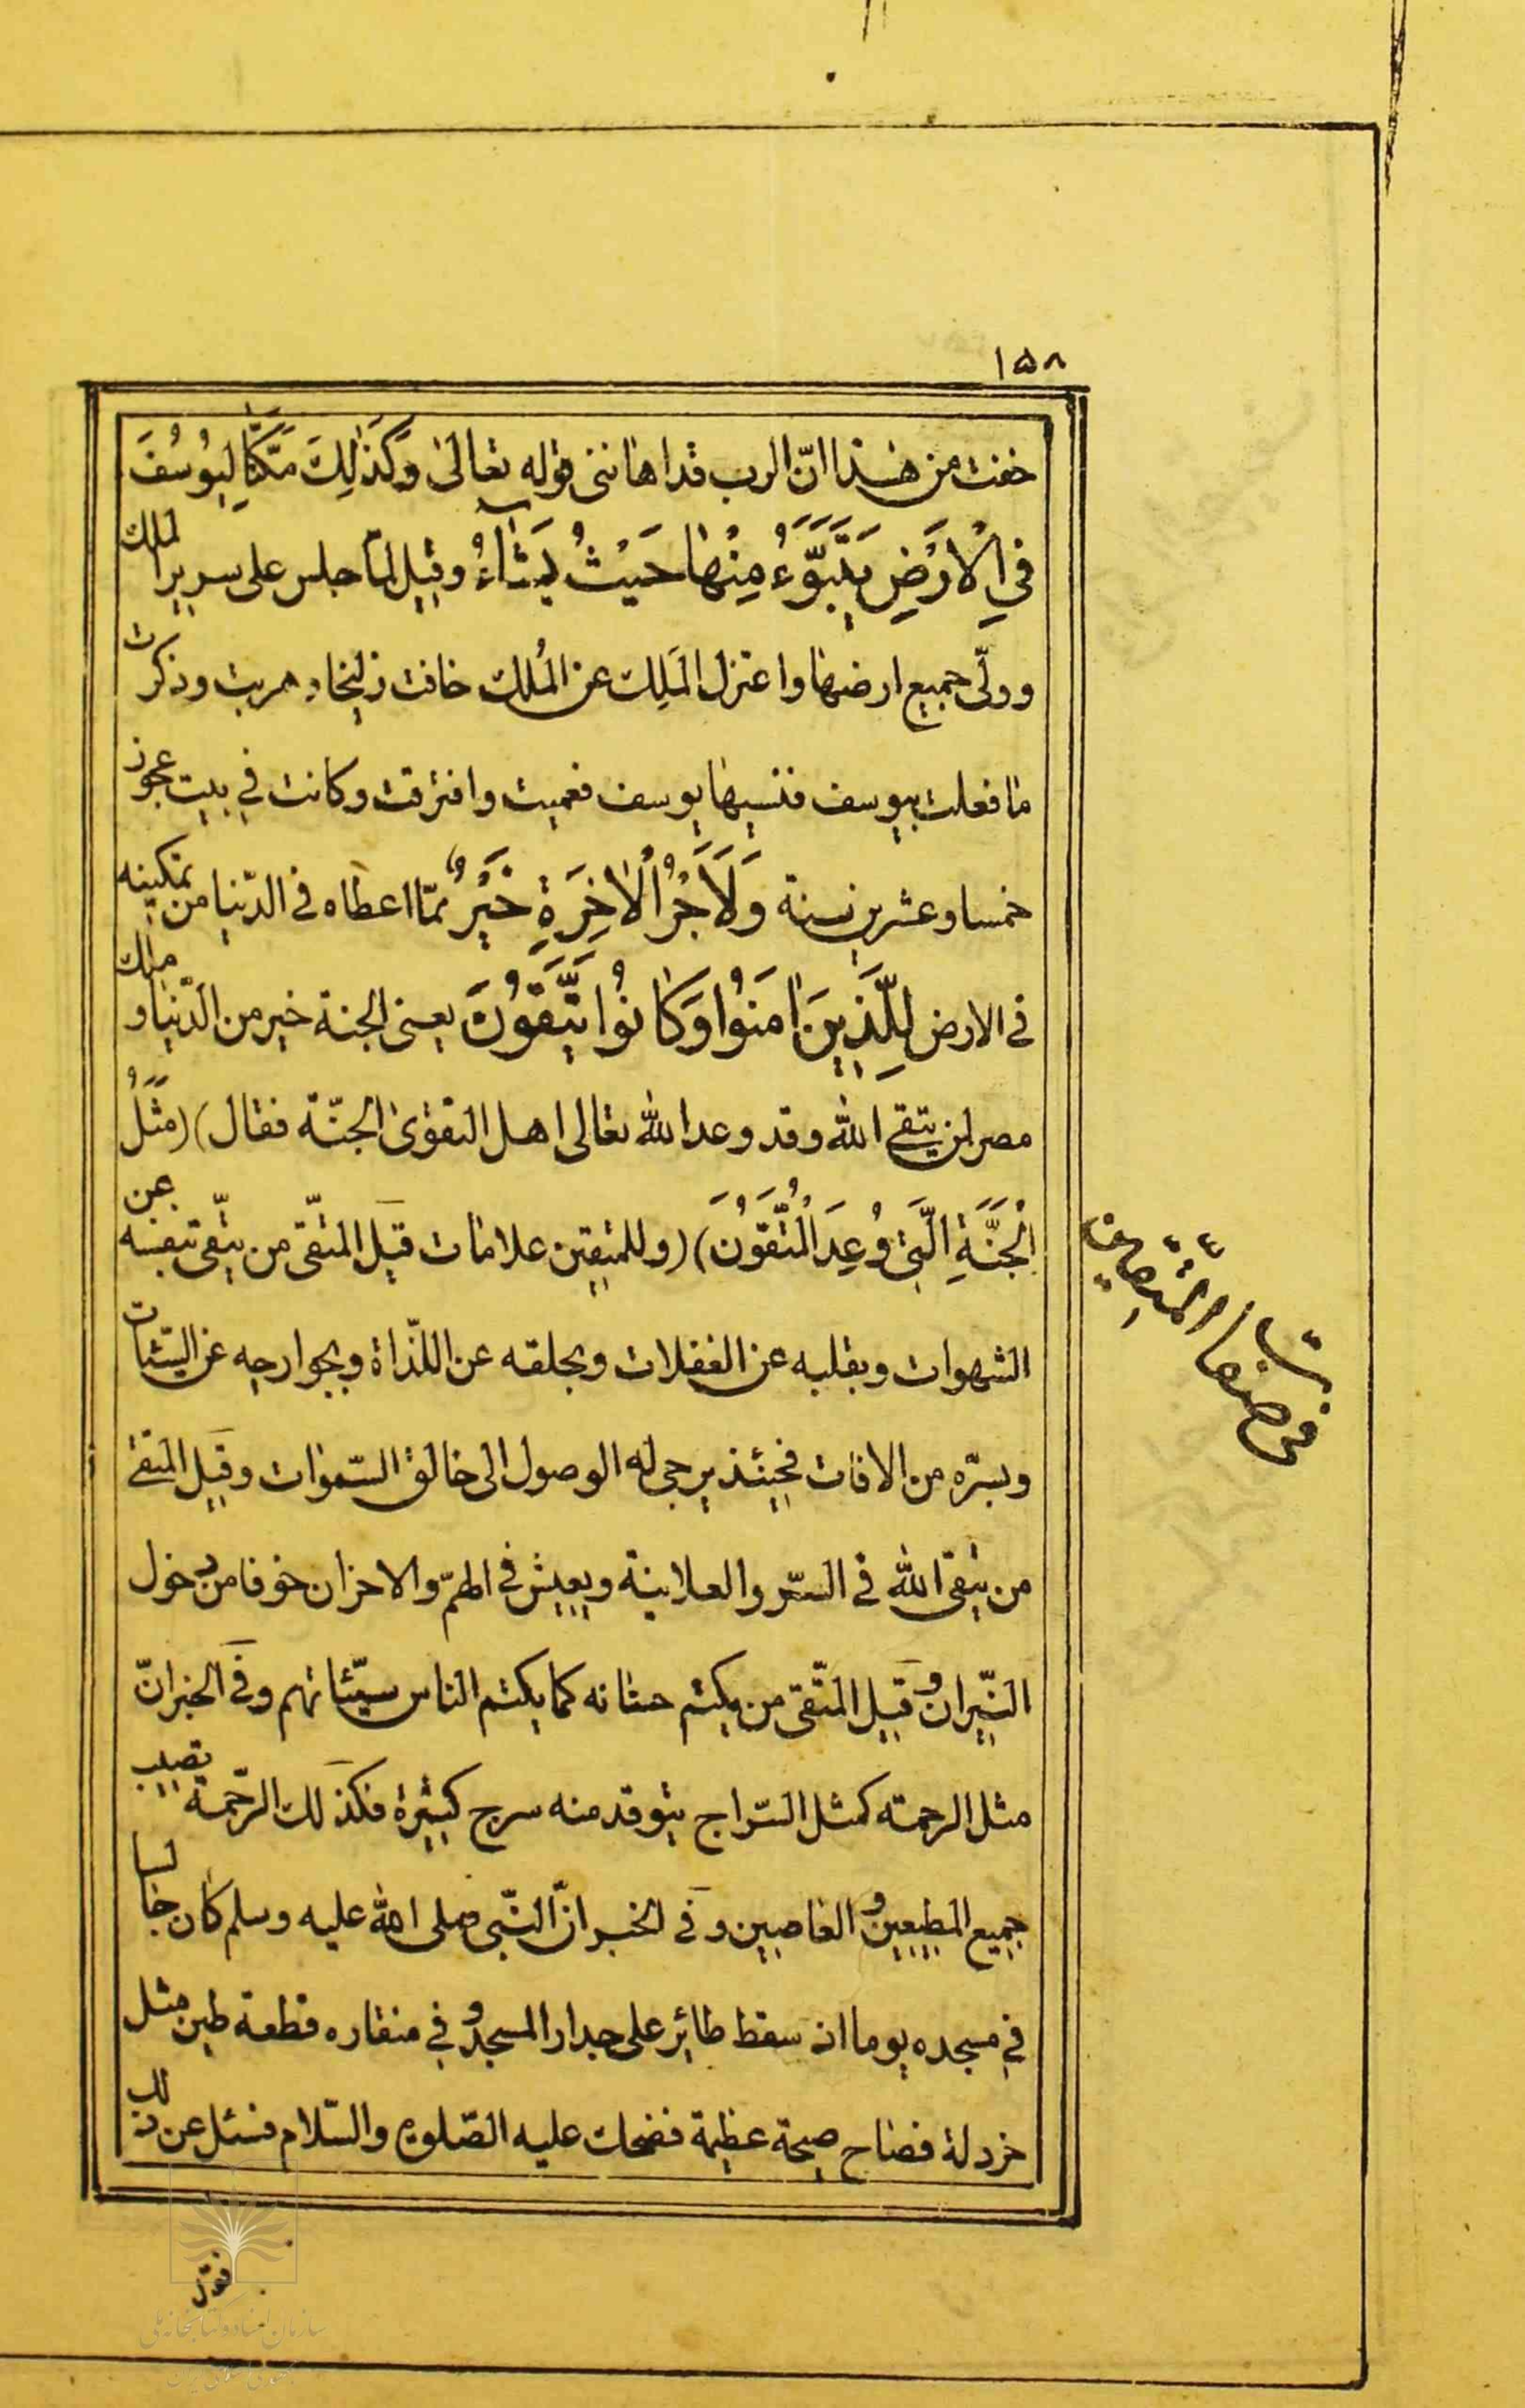 ١٥٨
خفت من هذا انّ الرب قد اهاننى قوله تعالى وَكَذٰلِكَ مَكَّنَّا لِيُوسُفَ
فِي الْاَرْضِ يَتَبَوَّءُ مِنْهٰا حَيْثُ يَشٰاءُ وقيل لمّا جلس على سرير الملك
وولّى جميع ارضها واعتزل المَلِك عن المُلك خافت زليخا وهربت وذكرت
ما فعلت بيوسف فنسيها يوسف فعميت وافترقت وكانت في بيت عجوز
خمسا وعشرين سنة وَلَاَجْرُ الْاٰخِرَةِ خَيْرٌ ممّا اعطاه فى الدّنيا من تمكينه
فى الارض لِلَّذِينَ اٰمَنُوا وَكٰانُوا يَتَّقُونَ يعنى الجنة خير من الدّنيا و ملك
مصر لمن يتقى الله وقد وعد الله تعالى اهل التقوى الجنّة فقال) (مَثَلُ
الْجَنَّةِ الَّتِى وُعِدَ الْمُتَّقُونَ) (وللمتقين علامات قيل المتّقى من يتّقى بنفسه عن
الشهوات وبقلبه عن الغفلات وبحلقه عن اللّذاة وبجوارحه عن السيّئات
وبسرّه من الافات فحينئذ يرجى له الوصول الى خالق السّموات وقيل المتقى
من يتقى الله فى السّر والعلانية ويعيش فى الهمّ والاحزان خوفا من دخول
النّيران و قيل المتّقى من يكتم حسناته كما يكتم الناس سيّئاتهم وفى الخبر انّ
مثل الرحمته كمثل السّراج يتوقد منه سرج كثيرة فكذلك الرّحمة تصيب
جميع المطيعين و العاصيين وفى الخبر انّ النّبى صلى الله عليه وسلم كان جالسا
فى مسجده يوما اذ سقط طائر على جدار المسجد و فى منقاره قطعة طين مثل
خردلة فصاح صيحة عظيمة فضحك عليه الصّلوة والسّلام فسئل عن ذلك
فى صفات المتّقين
سازمان اسناد و کتابخانه ملی
جمهوری اسلامی ایران